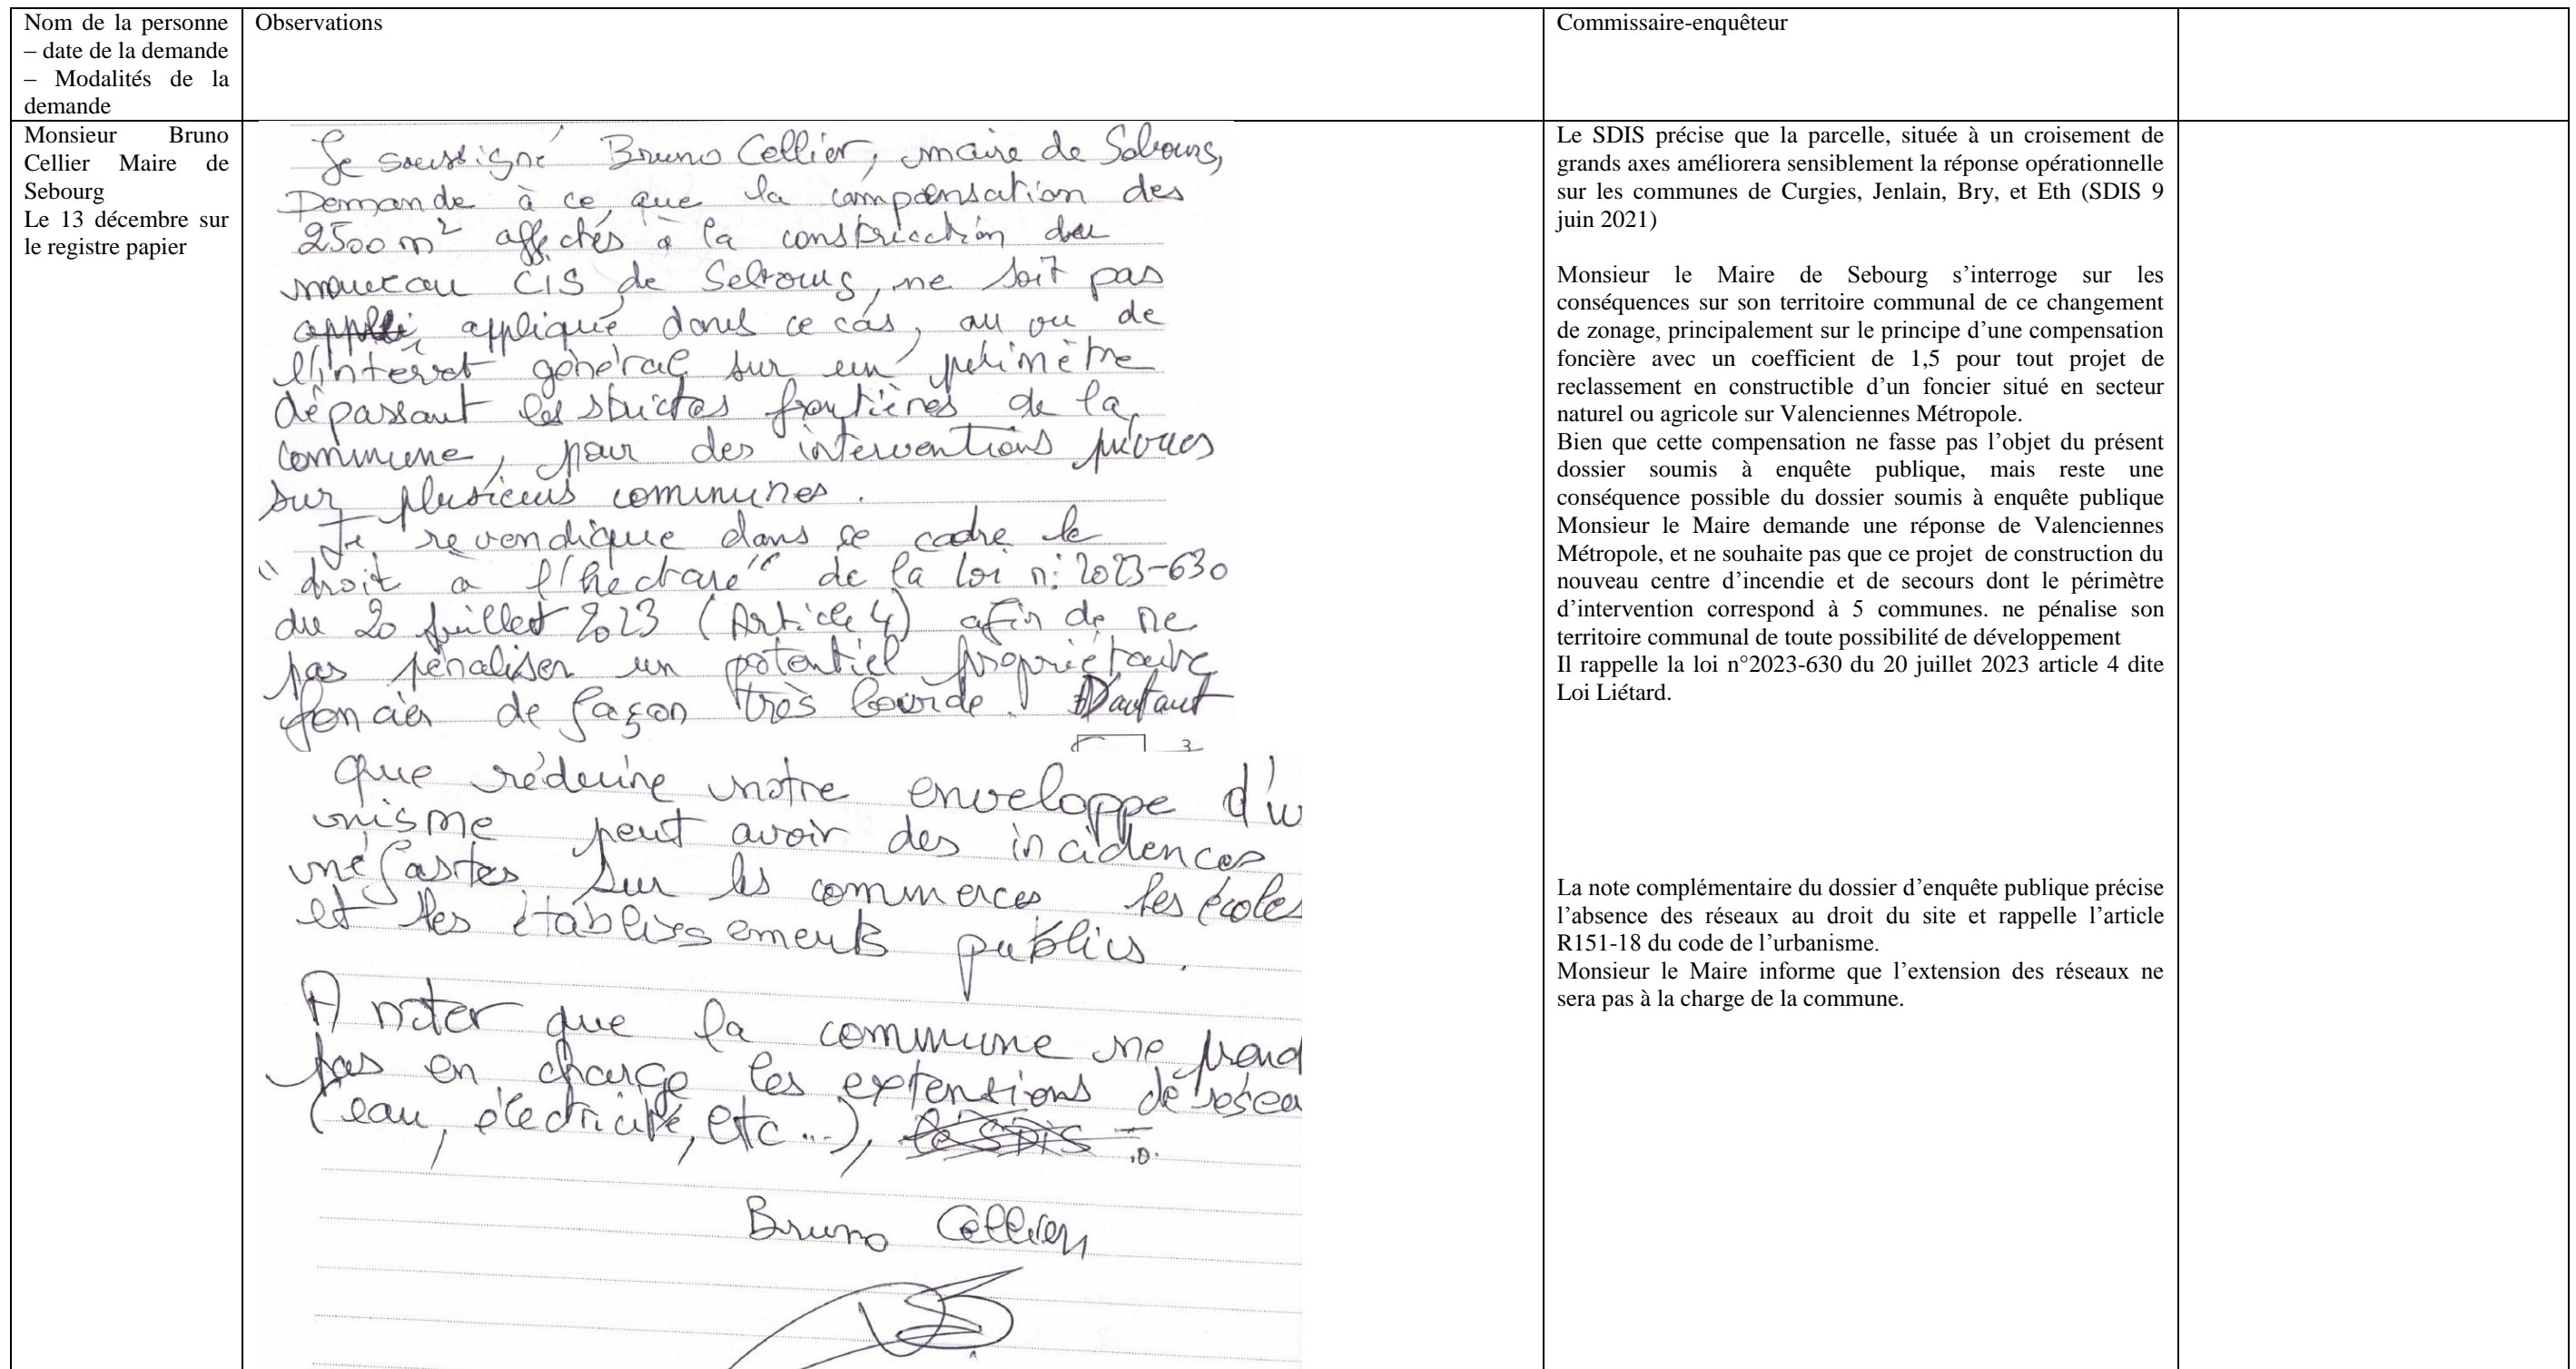 Nom de la personne
– date de la demande
– Modalités de la
demande
Observations
Commissaire-enquêteur
Monsieur Bruno
Cellier Maire de
Sebourg
Le 13 décembre sur
le registre papier
Je soussigné Bruno Cellier, maire de Sebourg,
Demande à ce que la compensation des
2500 m² affectés à la construction du
nouveau CIS de Sebourg, ne soit pas
appli appliqué dans ce cas, au vu de
l'interet général sur un périmètre
dépassant les strictes frontières de la
commune, pour des interventions prévues
sur plusieurs communes.
Je revendique dans ce cadre le
"droit a l'hectare" de la loi n: 2023-630
du 20 juillet 2023 (Article 4) afin de ne
pas pénaliser un potentiel propriétaire
foncier de façon très lourde. D'autant
3
que réduire notre enveloppe d'u
nisme peut avoir des incidences
néfastes sur les commerces les écoles
et les établissements publics.
A noter que la commune ne prend
pas en charge les extensions de résea
(eau, électricité, etc...), le SDIS
Bruno Cellier
Le SDIS précise que la parcelle, située à un croisement de
grands axes améliorera sensiblement la réponse opérationnelle
sur les communes de Curgies, Jenlain, Bry, et Eth (SDIS 9
juin 2021)
Monsieur le Maire de Sebourg s’interroge sur les
conséquences sur son territoire communal de ce changement
de zonage, principalement sur le principe d’une compensation
foncière avec un coefficient de 1,5 pour tout projet de
reclassement en constructible d’un foncier situé en secteur
naturel ou agricole sur Valenciennes Métropole.
Bien que cette compensation ne fasse pas l’objet du présent
dossier soumis à enquête publique, mais reste une
conséquence possible du dossier soumis à enquête publique
Monsieur le Maire demande une réponse de Valenciennes
Métropole, et ne souhaite pas que ce projet de construction du
nouveau centre d’incendie et de secours dont le périmètre
d’intervention correspond à 5 communes. ne pénalise son
territoire communal de toute possibilité de développement
Il rappelle la loi n°2023-630 du 20 juillet 2023 article 4 dite
Loi Liétard.
La note complémentaire du dossier d’enquête publique précise
l’absence des réseaux au droit du site et rappelle l’article
R151-18 du code de l’urbanisme.
Monsieur le Maire informe que l’extension des réseaux ne
sera pas à la charge de la commune.